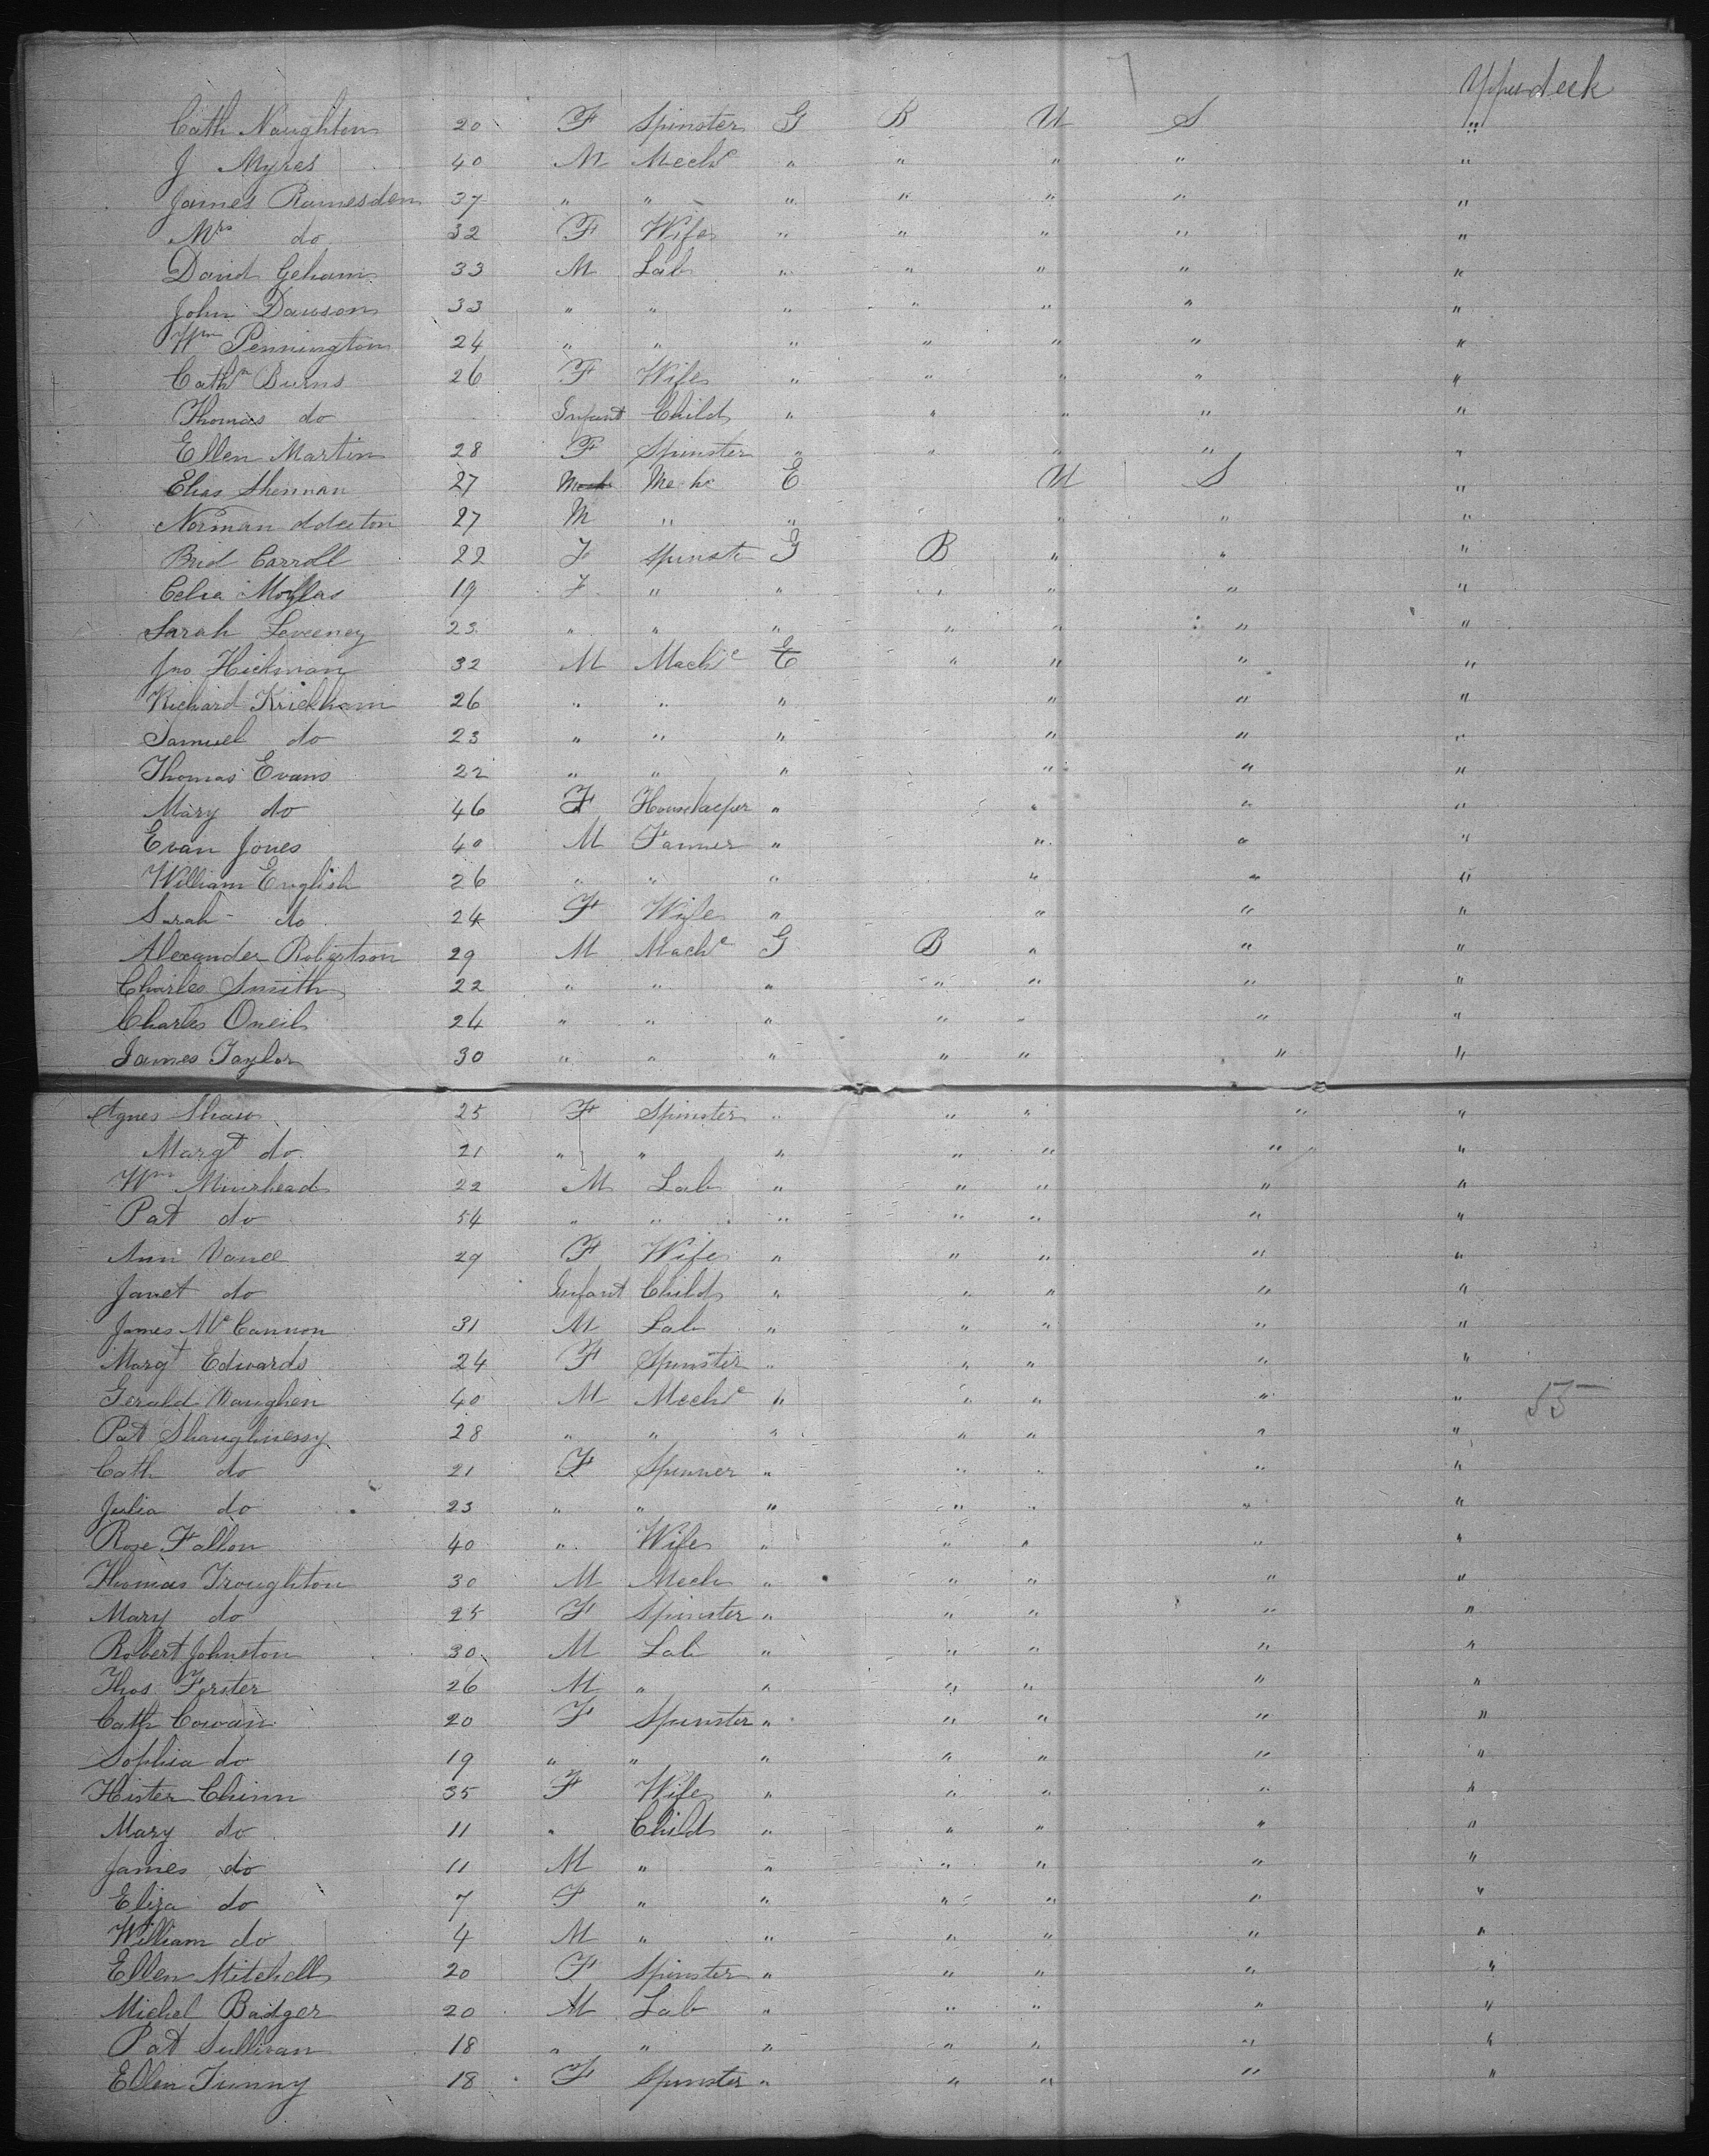 7 Upper deck
Cath Naughton 20 F Spinster G B U S "
J Myres 40 M Mechc " " " " "
James Ramesden 37 " " " " " " "
Mrs do 32 F Wife " " " " "
David Geham 33 M Lab " " " " "
John Dawson 33 " " " " " " "
Wm Pennington 24 " " " " " " "
Cathn Burns 26 F Wife " " " " "
Thomas do Infant Child " " " " "
Ellen Martin 28 F Spinster " " " " "
Elias Shennan 27 Mechc E U S "
Norman 27 M " " " " "
Brid Carroll 22 F Spinst G B " " "
Celia 19 F " " " " " "
Sarah Leveeney 23 " " " " " " "
Jno Hickman 32 M Mechc E " " " "
Richard Krickham 26 " " " " " "
Samuel do 23 " " " " " "
Thomas Evans 22 " " " " " "
Mary do 46 F Housekeeper " " " "
Evan Jones 40 M Farmer " " " "
William English 26 " " " " " "
Sarah do 24 F Wife " " " "
Alexander Robertson 29 M Mechc G B " " "
Charles Smith 22 " " " " " " "
Charles Oneil 24 " " " " " " "
James Taylor 30 " " " " " " "
Agnes Shaw 25 F Spinster " " " " "
Margt do 21 " " " " " " "
Wm Muirhead 22 M Lab " " " " "
Pat do 54 " " " " " " "
Ann Vance 29 F Wife " " " " "
Janet do Infant Child " " " " "
James McCannon 31 M Lab " " " " "
Margt Edwards 24 F Spinster " " " " "
Gerald Vaughen 40 M Mechc " " " " " 55
Pat Shaughnessy 28 " " " " " " "
Cath do 21 F Spinner " " " " "
Julia do 23 " " " " " " "
Rose Fallon 40 " Wife " " " " "
Thomas Troughton 30 M Mech " " " " "
Mary do 25 F Spinster " " " " "
Robert Johnston 30 M Lab " " " " "
Thos Forster 26 M " " " " " "
Cath Cowan 20 F Spinster " " " " "
Sophia do 19 " " " " " " "
Hister Chinn 35 F Wife " " " " "
Mary do 11 " Child " " " " "
James do 11 M " " " " " "
Eliza do 7 F " " " " " "
William do 4 M " " " " " "
Ellen Mitchell 20 F Spinster " " " " "
Michel Badger 20 M Lab " " " " "
Pat Sullivan 18 " " " " " " "
Ellen Tunny 18 F Spinster " " " " "